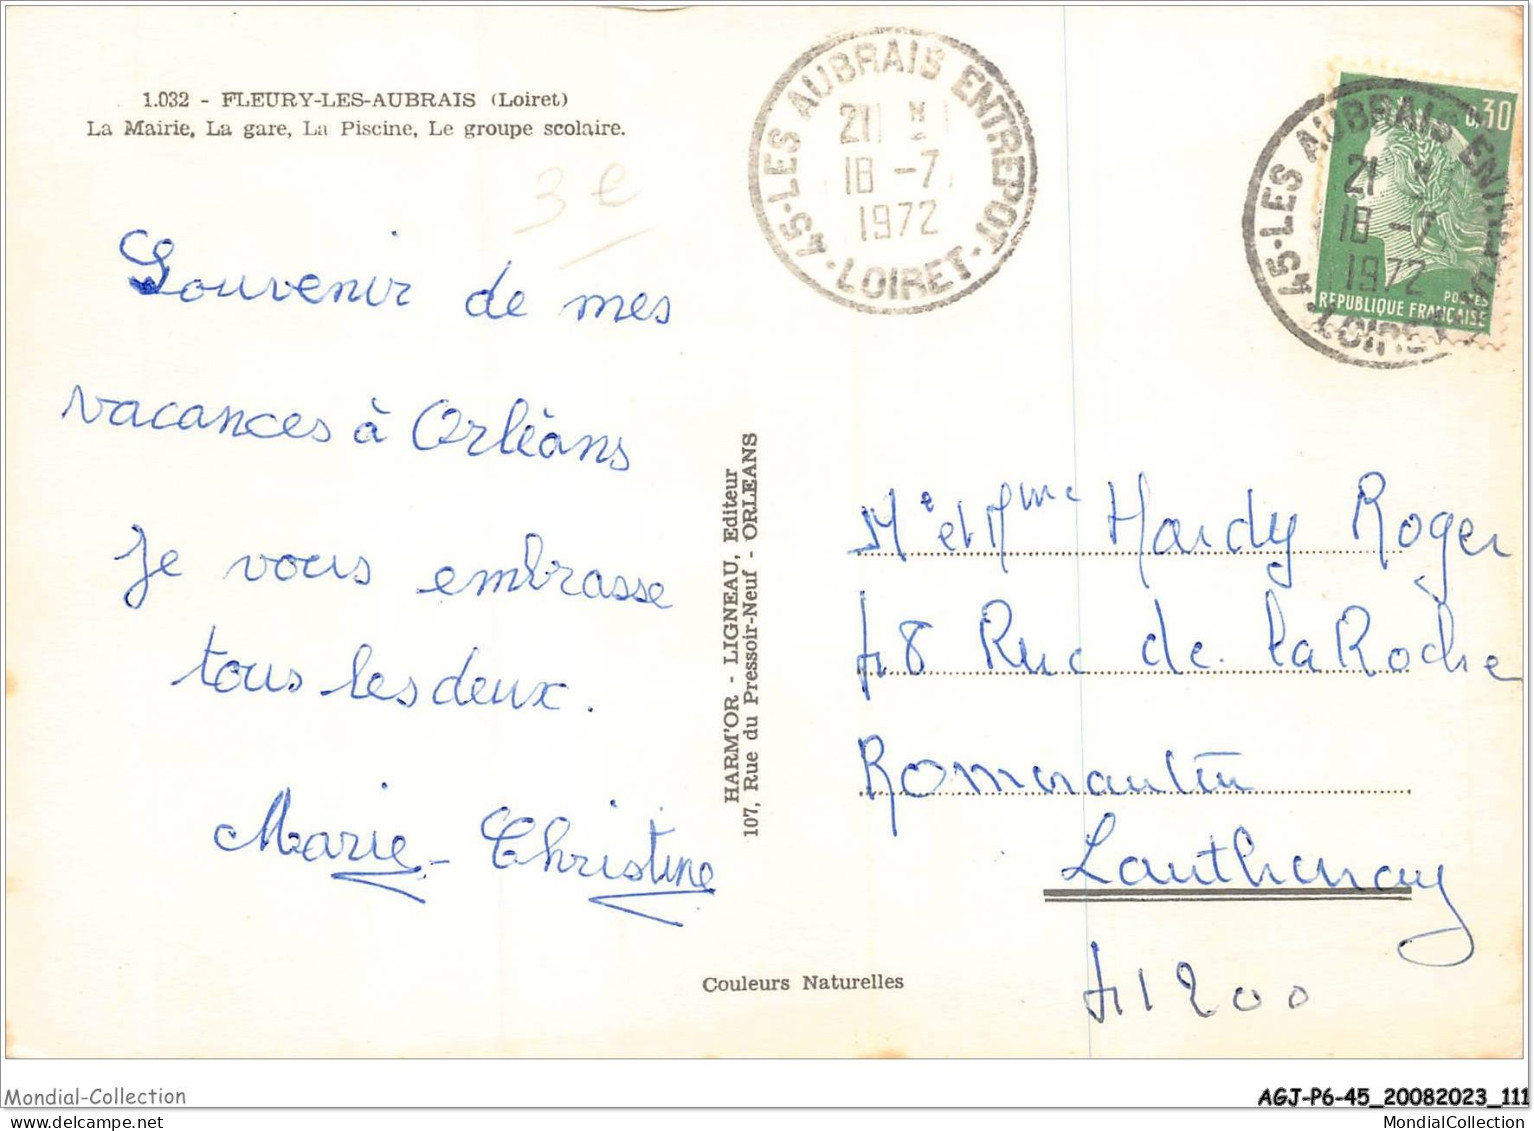 1.032 - FLEURY-LES-AUBRAIS (Loiret)
La Mairie, La gare, La Piscine, Le groupe scolaire.
3 e
Souvenir de mes
vacances à Orléans
Je vous embrasse
tous les deux.
Marie-Christine
HARM'OR - LIGNEAU, Editeur
107, Rue du Pressoir-Neuf - ORLEANS
Couleurs Naturelles
45-LES AUBRAIS ENTREPOT
21 H
18-7
1972
LOIRET
0,30
POSTES
REPUBLIQUE FRANÇAISE
45-LES AUBRAIS
21 H
18-7
1972
LOIRET
Mr et Mme Hardy Roger
48 Rue de la Roche
Romorantin
Lanthenay
41200
Mondial-Collection
AGJ-P6-45_20082023_111
MondialCollection